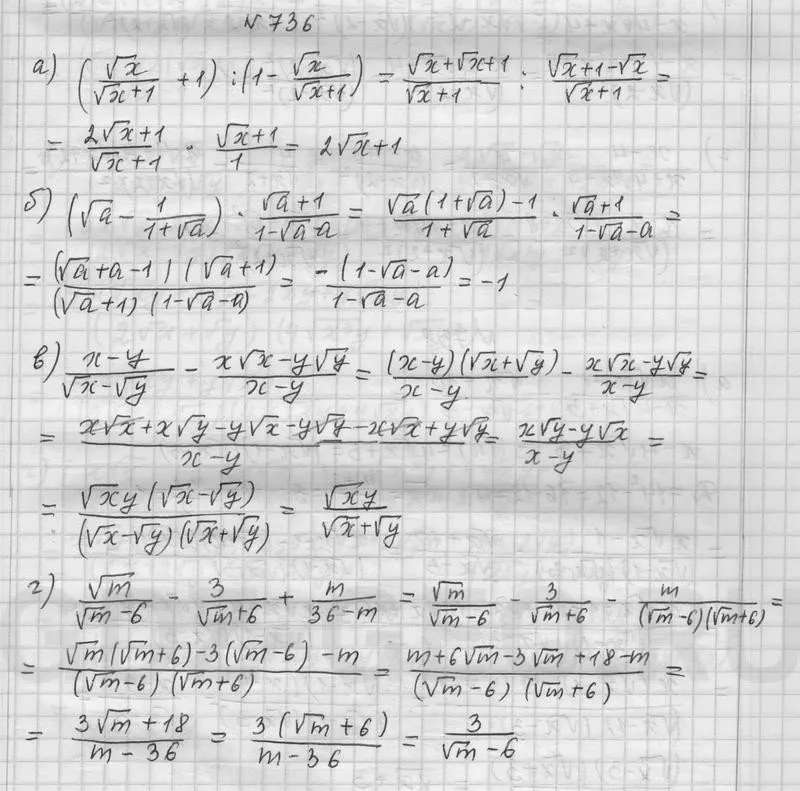 №736
а) (√x/(√x+1) + 1) : (1 - √x/(√x+1)) = (√x+√x+1)/(√x+1) : (√x+1-√x)/(√x+1) =
= (2√x+1)/(√x+1) · (√x+1)/1 = 2√x+1
б) (√a - 1/(1+√a)) · (√a+1)/(1-√a-a) = (√a(1+√a)-1)/(1+√a) · (√a+1)/(1-√a-a) =
= ((√a+a-1)(√a+1))/((√a+1)(1-√a-a)) = -(1-√a-a)/(1-√a-a) = -1
в) (x-y)/(√x-√y) - (x√x-y√y)/(x-y) = ((x-y)(√x+√y))/(x-y) - (x√x-y√y)/(x-y) =
= (x√x+x√y-y√x-y√y-x√x+y√y)/(x-y) = (x√y-y√x)/(x-y) =
= (√xy(√x-√y))/((√x-√y)(√x+√y)) = √xy/(√x+√y)
г) √m/(√m-6) - 3/(√m+6) + m/(36-m) = √m/(√m-6) - 3/(√m+6) - m/((√m-6)(√m+6)) =
= (√m(√m+6)-3(√m-6)-m)/((√m-6)(√m+6)) = (m+6√m-3√m+18-m)/((√m-6)(√m+6)) =
= (3√m+18)/(m-36) = (3(√m+6))/(m-36) = 3/(√m-6)